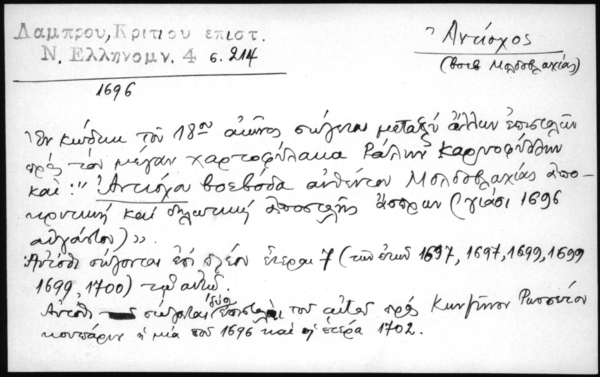 Λαμπρου, Κριτιου επιστ.
Ν. Ελληνομν. 4 σ. 214
Ἀντίοχος
(βοεβ Μολδοβλαχίας)
1696
Ἐν κώδικι τοῦ 18ου αἰῶνος σώζεται μεταξὺ ἄλλων ἐπιστολῶν
πρὸς τὸν μέγαν χαρτοφύλακα Ράλην Καρυοφύλλην
καί: "Ἀντιόχου βοεβόδα αὐθέντου Μολδοβλαχίας ἀπο-
κριτική καὶ δηλωτική ἀποστολῆς ἄσπρων (Γιάσι 1696
αὐγούστου)».
Αὐτόθι σώζονται ἐπὶ πλέον ἕτεραι 7 (τῶν ἐτῶν 1697, 1697, 1699, 1699
1699, 1700) τοῦ αὐτοῦ.
Αὐτόθι σώζονται δύο ἐπιστολαὶ τοῦ αὐτοῦ πρὸς
ἡ μία τοῦ 1696 καὶ ἡ ἑτέρα 1702.